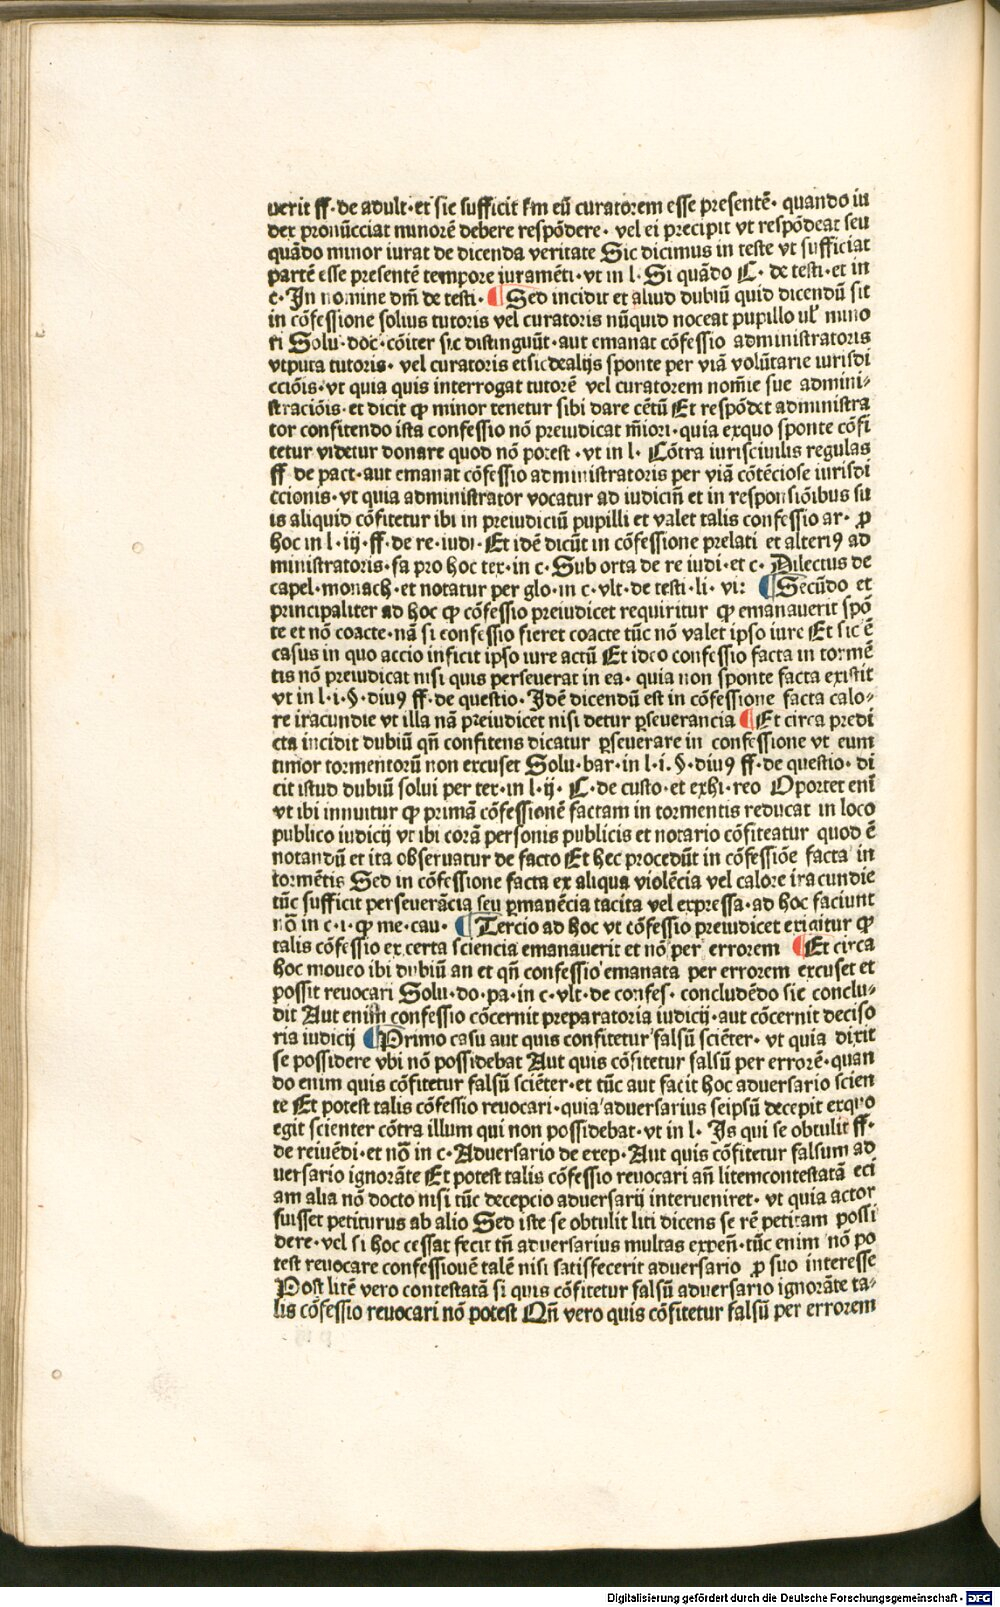 verit ff· de adult·et sic sufficit ẜm eū curatorem esse presentē· quando iu
dex pronūcciat minorē debere respōdere· vel ei precipit vt respōdeat seu
quādo minor iurat de dicenda veritate Sic dicimus in teste vt sufficiat
partē esse presentē tempore iuramēti·vt in l· Si quādo C· de testi·et in
c·In nomine dm̄ de testi· ¶ Sed incidit et aliud dubiū quid dicendū sit
in cōfessione solius tutoris vel curatoris nūquid noceat pupillo ul' mino
ri Solu·doc·cōiter sic distinguūt·aut emanat cōfessio administratoris
vtputa tutoris· vel curatoris et sic de alijs sponte per viā volūtarie iurisdi
cciōis·vt quia quis interrogat tutorē vel curatorem nomīe sue admini⸗
straciōis·et dicit ꝙ minor tenetur sibi dare cētū Et respōdet administra
tor confitendo ista confessio nō preiudicat m̄iori·quia exquo sponte cōfi
tetur videtur donare quod nō potest ·vt in l· Cōtra iurisciuilis regulas
ff de pact·aut emanat cōfessio administratoris per viā cōtēciose iurisdi
ccionis·vt quia administrator vocatur ad iudiciū et in responsiōibus su
is aliquid cōfitetur ibi in preiudiciū pupilli et valet talis confessio ar· ꝓ
hoc in l·iij·ff·de re·iudi·Et idē dicūt in cōfessione prelati et alteri9 ad
ministratoris·fa pro hoc tex·in c·Sub orta de re iudi·et c· Dilectus de
capel·monach·et notatur per glo·in c·vlt·de testi·li·vi: ¶ Secūdo et
principaliter ad hoc ꝙ cōfessio preiudicet requiritur ꝙ emanauerit spō
te et nō coacte·nā si confessio fieret coacte tūc nō valet ipso iure Et sic ē
casus in quo accio inficit ipso iure actū Et ideo confessio facta in tormē
tis nō preiudicat nisi quis perseuerat in ea· quia non sponte facta existit
vt in l·i·§·diu9 ff·de questio·Idē dicendū est in cōfessione facta calo⸗
re iracundie vt illa nā preiudicet nisi detur ꝑseuerancia ¶ Et circa predi
cta incidit dubiū qn̄ confitens dicatur ꝑseuerare in confessione vt eum
timor tormentorū non excuset Solu·bar·in l·i·§·diu9 ff·de questio· di
cit istud dubiū solui per tex·in l·ij· C·de custo·et exhi·reo Oportet eni
vt ibi innuitur ꝙ primā cōfessionē factam in tormentis reducat in loco
publico iudicij vt ibi corā personis publicis et notario cōfiteatur quod ē
notandū et ita obseruatur de facto Et hec procedūt in cōfessiōe facta in
tormētis Sed in cōfessione facta ex aliqua violēcia vel calore iracundie
tūc sufficit perseuerācia seu ꝑmanēcia tacita vel expressa·ad hoc faciunt
nō in c·i·ꝙ me·cau· ¶ Tercio ad hoc vt cōfessio preiudicet exigitur ꝙ
talis cōfessio ex certa sciencia emanauerit et nō per errorem ¶ Et circa
hoc moueo ibi dubiū an et qn̄ confessio emanata per errorem excuset et
possit reuocari Solu·do·pa·in c·vlt·de confes· concludēdo sic conclu⸗
dit Aut enim confessio cōcernit preparatoria iudicij·aut cōcernit deciso
ria iudicij ¶ Primo casu aut quis confitetur falsū sciēter· vt quia dixit
se possidere vbi nō possidebat Aut quis cōfitetur falsū per errorē·quan
do enim quis cōfitetur falsū sciēter·et tūc aut facit hoc aduersario scien
te Et potest talis cōfessio reuocari·quia aduersarius seipsū decepit exquo
egit scienter cōtra illum qui non possidebat·vt in l· Is qui se obtulit ff·
de reiuēdi·et nō in c·Aduersario de excp·Aut quis cōfitetur falsum ad
uersario ignorāte Et potest talis cōfessio reuocari an̄ litemcontestatā eci
am alia nō docto nisi tūc decepcio aduersarij interueniret· vt quia actor
fuisset petiturus ab alio Sed iste se obtulit liti dicens se rē petitam possi
dere·vel si hoc cessat fecit tn̄ aduersarius multas expen̄·tūc enim nō po
test reuocare confessionē talē nisi satisfecerit aduersario ꝓ suo interesse
Post litē vero contestatā si quis cōfitetur falsū aduersario ignorāte ta⸗
lis cōfessio reuocari nō potest Qn̄ vero quis cōfitetur falsū per errorem
Digitalisierung gefördert durch die Deutsche Forschungsgemeinschaft · DFG